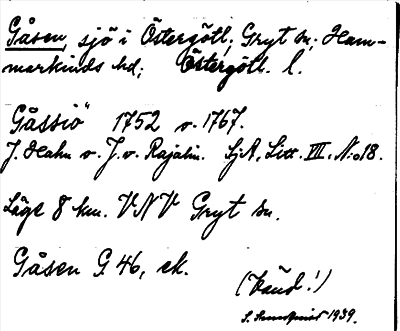 Gåsen, sjö i Östergötl., Gryt sn; Ham-
markinds hd; Östergötl. l.
Gåssiö" 1752 v. 1767.
J. Hahn v. J. v. Rajalin. SjA, Litt. III. No 18.
Läge 8 km. VNV Gryt sn.
Gåsen G 46, ek.
(känd!)
S. 1939.